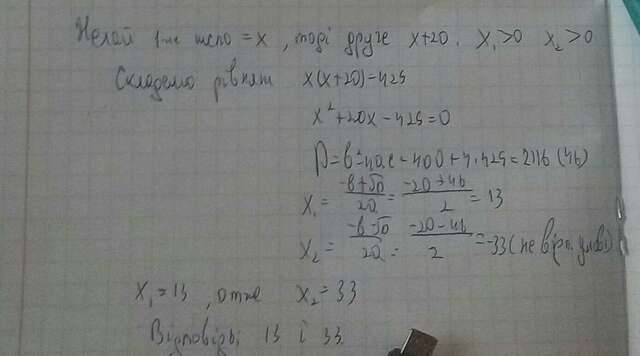 Нехай 1-ше число = x, тоді друге x+20. x₁>0 x₂>0
Складемо рівнян x(x+20)-425
x²+20x-425=0
D=b²-4ac=400+4·425=2116 (46)
x₁= (-b+√D)/2a = (-20+46)/2 = 13
x₂= (-b-√D)/2a = (-20-46)/2 = -33 (не відп. умові)
x₁=13, отже x₂=33
Відповідь: 13 і 33